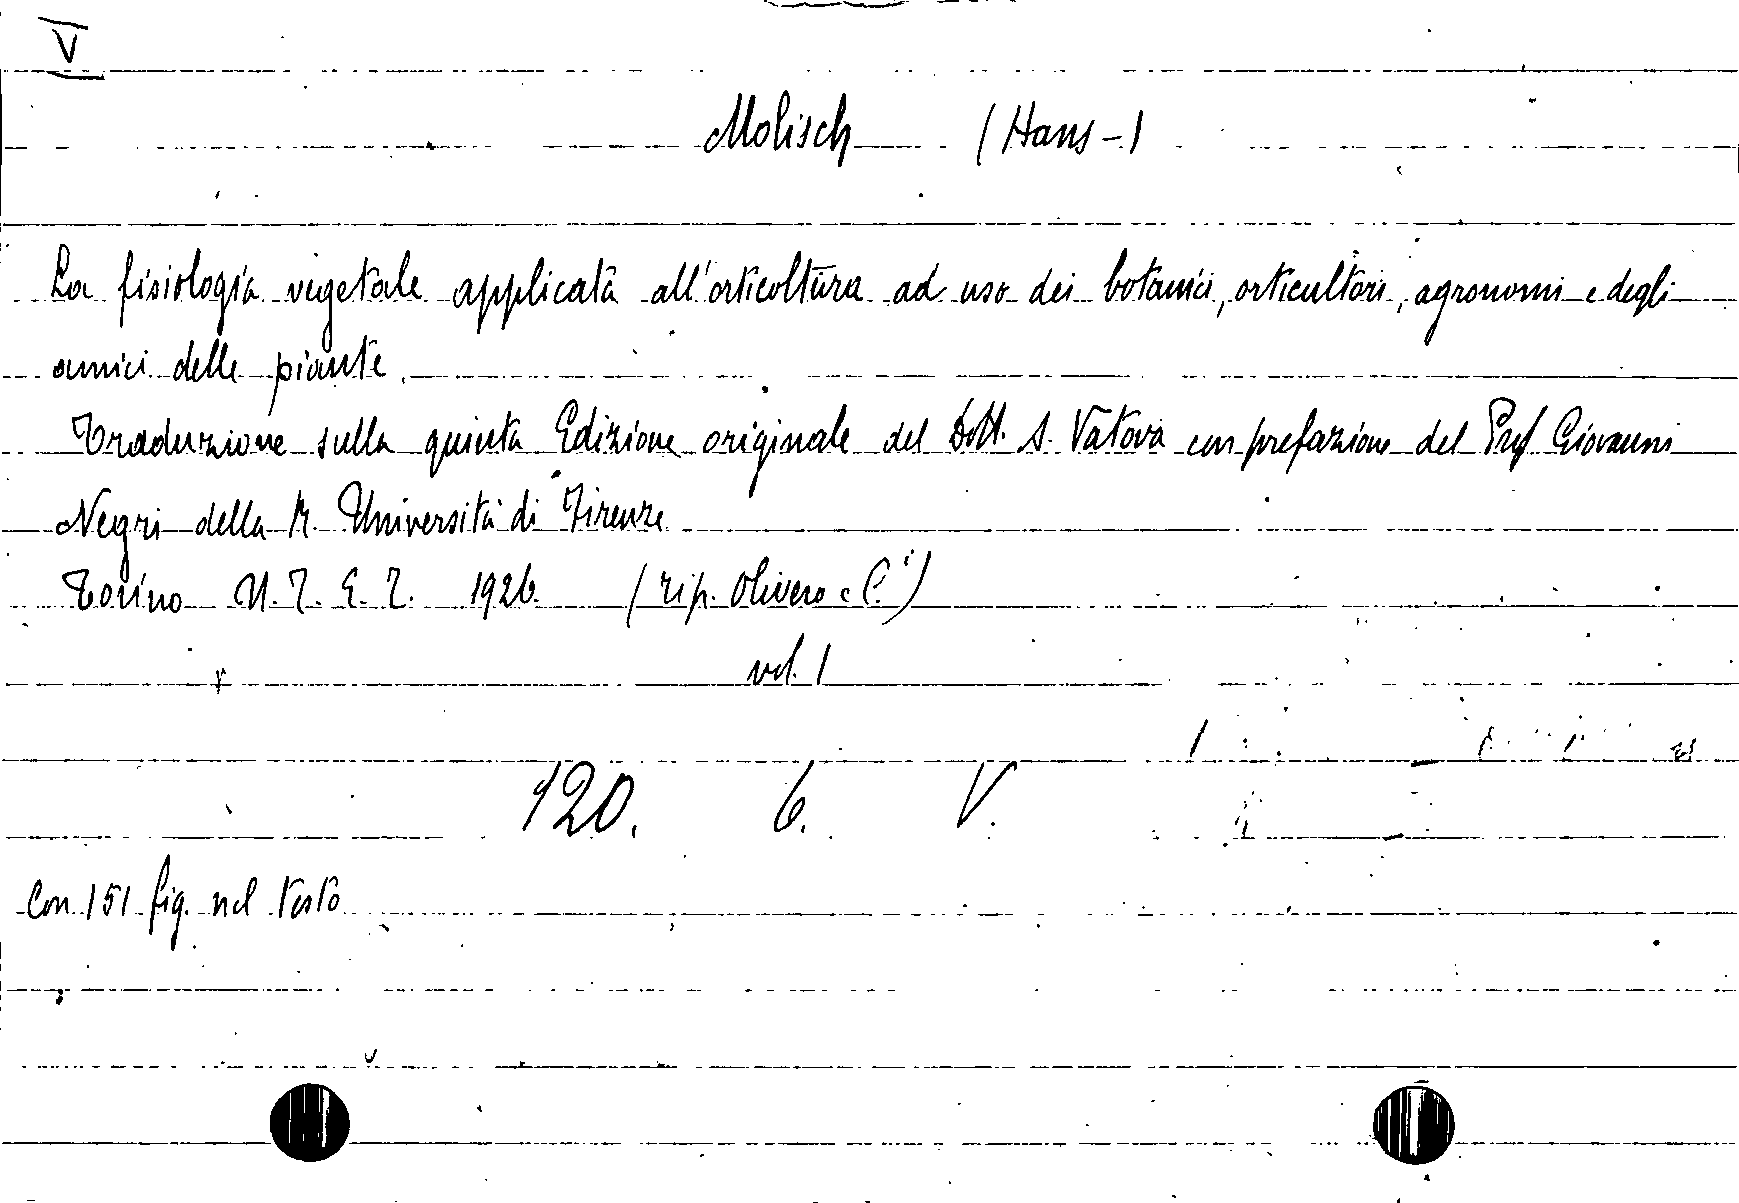 V
Molisch (Hans-)
La fisiologia vegetale applicata all'orticoltura ad uso dei botanici, orticultori, agronomi e degli
amici delle piante.
Traduzione sulla quinta Edizione originale del Dott. A. Vatova con prefazione del Prof Giovanni
Negri della R. Università di Firenze
Torino U.T.E.T. 1926 (tip. Olivero e C.i)
vol. 1
120. 6. V.
Con 151 fig. nel testo